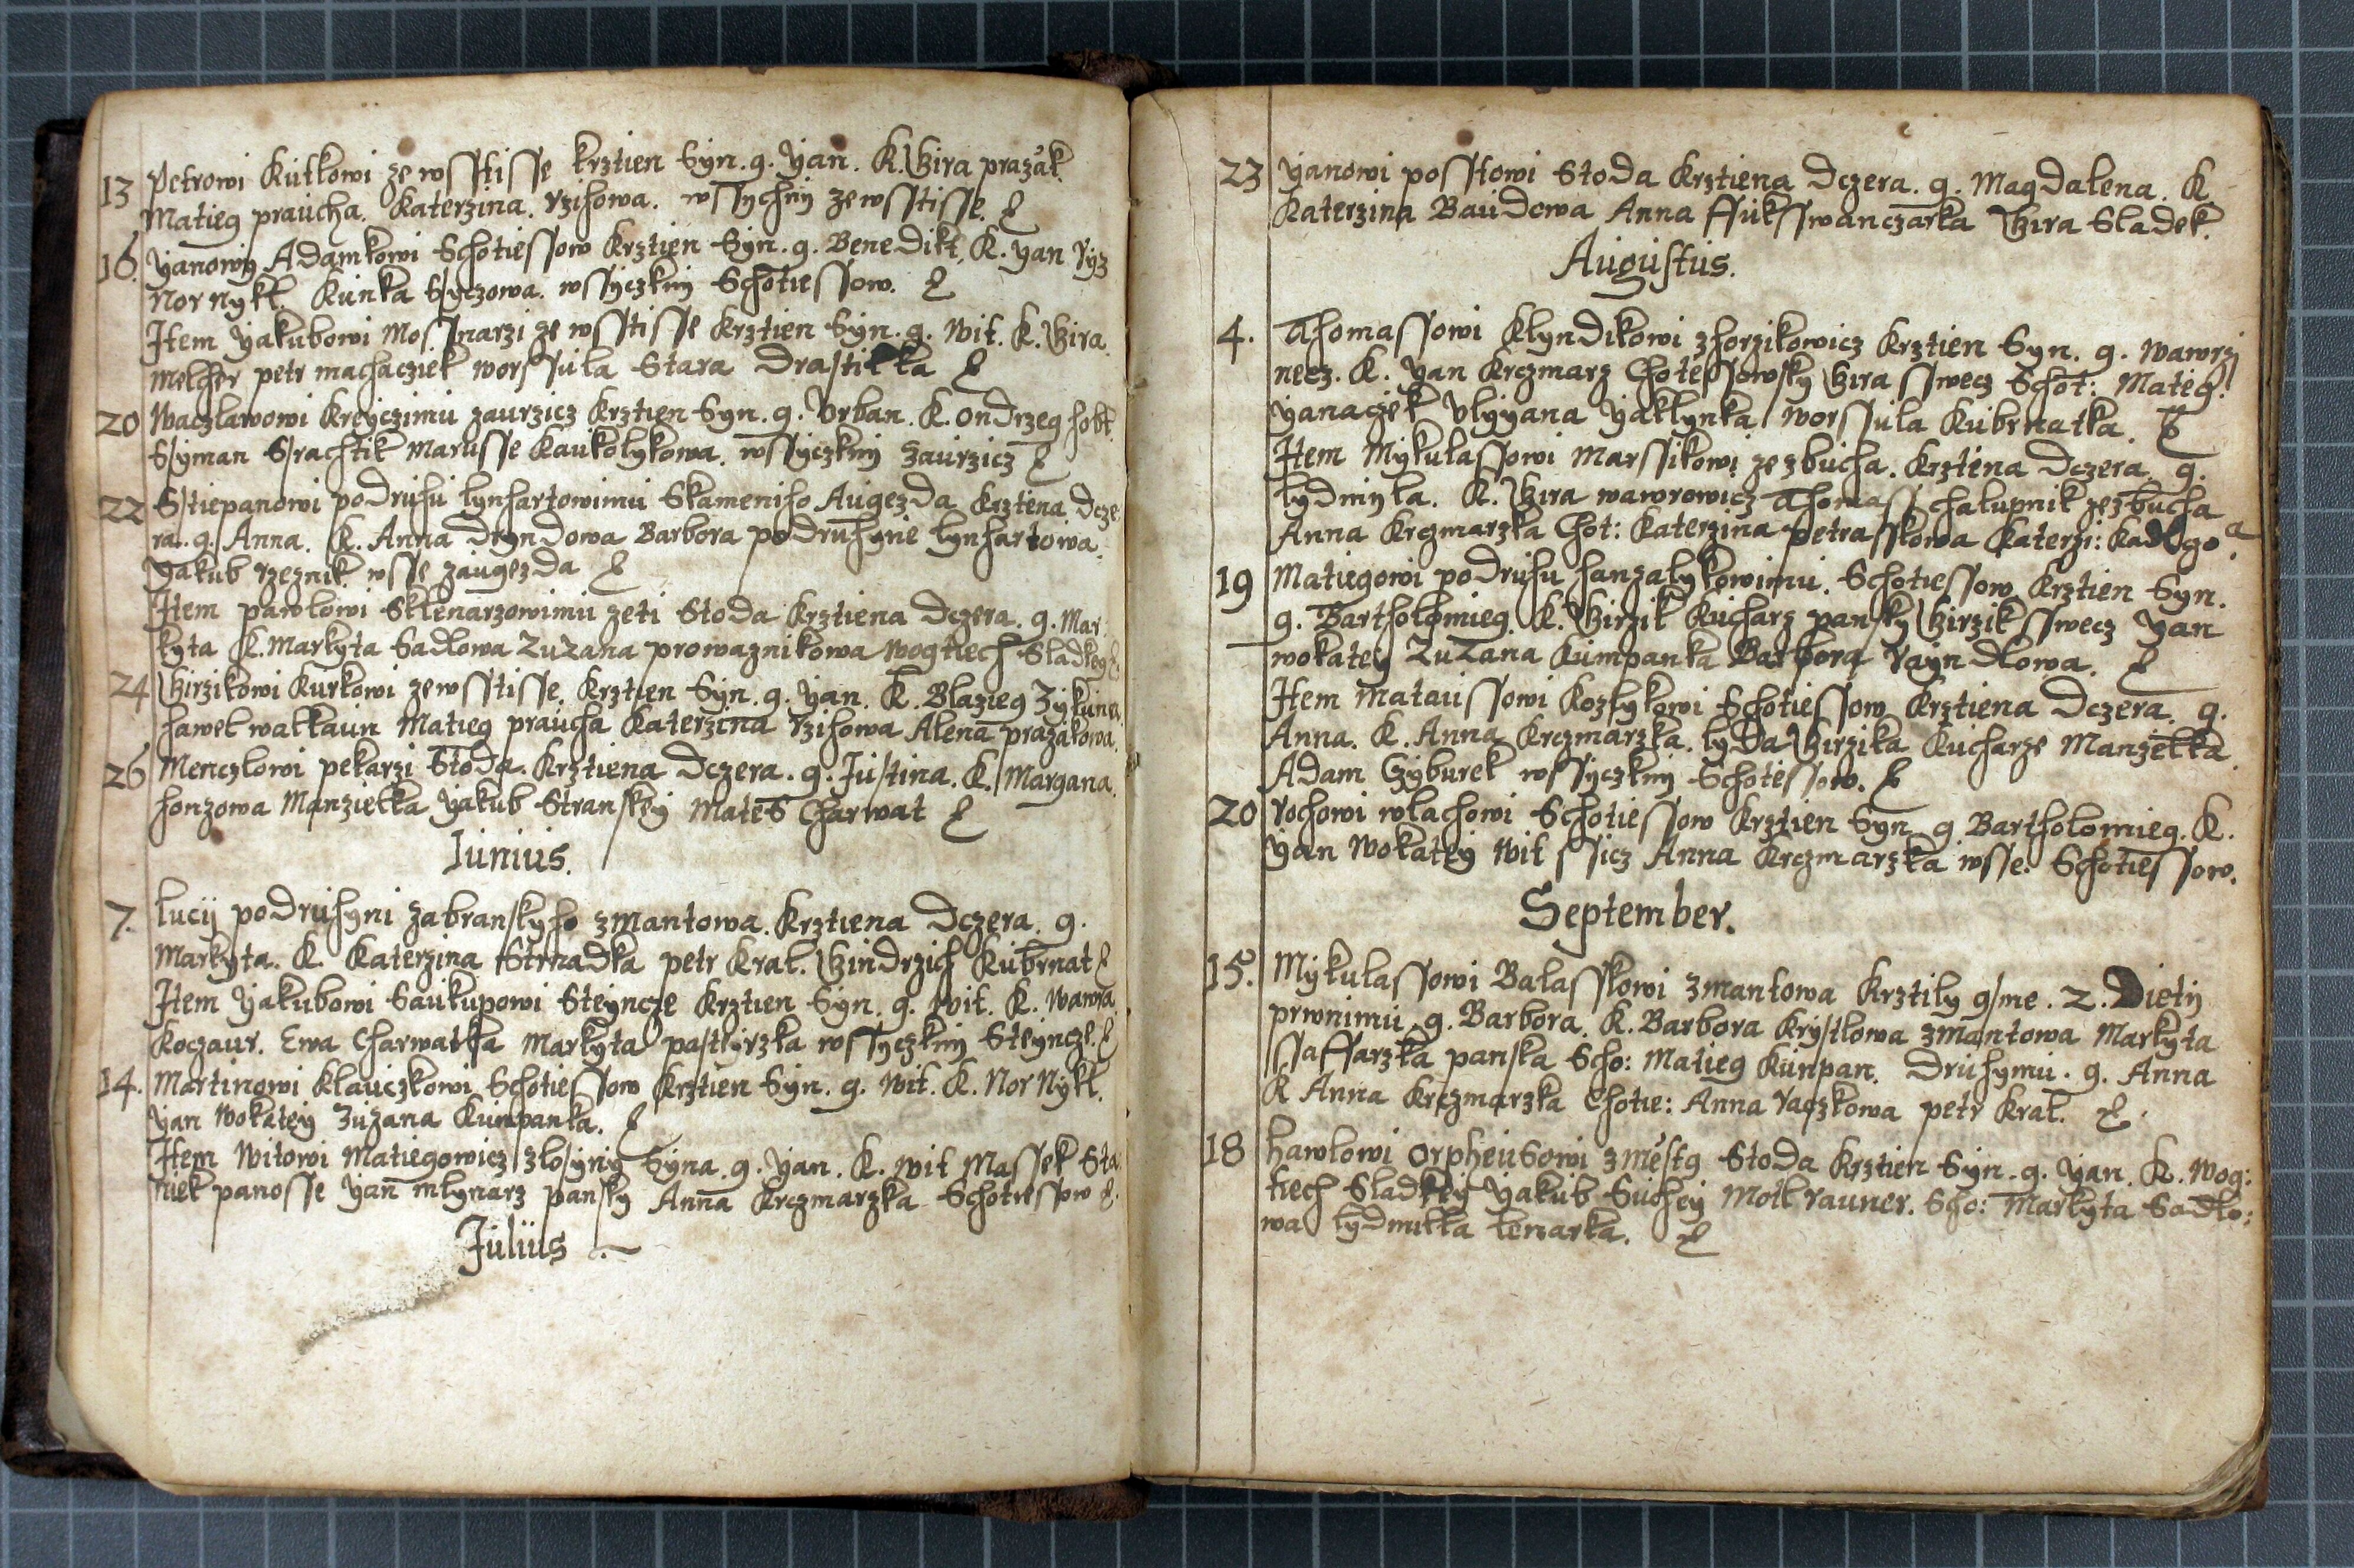 13 Petrowi Kutkowi ze wsstisse krztien Syn. g. Yan. K. Gira prazak.
Matieg praucha. Katerzina. rzihowa. wssychny ze wsstisse.
16. Yanowy Adamkowi Schotiessow Krztien Syn. g. Benedikt. K. Yan Ryz
Nor nykl. Kunka Syczowa. wssyczkny Schotiessow.
Item Yakubowi Mossnarzi ze wsstisse Krztien Syn. g. Wit. K. Gira.
Melcher petr machacziek worssula Stara
20 Waczlawowi Kreyczimu zaurzicz Krztien Syn. g. Vrban. K. Ondrzeg hobl.
Ssyman Ssrachtik Marusse Kaukolykowa. wssyczkny Zaurzicz
22 Sstiepanowi podruhu lynhartowimu Skameniho Augezda Krztena Dcze
ra. g. Anna. K. Anna dryndowa Barbora podruhynie lynhartowa.
Yakub rzeznik wsse zaugezda
Item pawlowi Sklenarzowimu zeti Stoda Krztiena Dczera. g. Mar
kyta K. Markyta Sadlowa ZuZana prowaznikowa Wogtiech Sladkey
24 Girzikowi Kurkowi ze wsstisse. Krztien Syn. g. Yan. K. Blazieg Zykuna
hawel watkaun Matieg praucha Katerzina rzihowa Alena prazakowa.
26 Menczlowi pekarzi Stoda. Krztiena Dczera. g. Justina. K. Margana.
honzowa Manzielka Yakub Stranskey Mates Charwat
Iunius.
7. Lucij podruhyni zabranskyho zmantowa. Krztiena Dczera. g.
Markyta. K. Katerzina Strnadka petr Kral. Gindrzich Kubrnat
Item Yakubowi Saukupowi Steyncze Krztien Syn. g. Wit. K. Wawra
Koczaur. Ewa Charwatka Markyta pastyrzka wssyczkny Steyncze.
14. Martinowi Klauczkowi Schotiessow Krztien Syn. g. Wit. K. Nor Nykl.
Yan Wokatey Zuzana Kumpanka.
Item Witowi Matiegowicz zlosyny Syna. g. Yan. K. Wit Massek Sta
niek panosse Yan mlynarz pansky Anna Krczmarzka Schotiessow
Julius
23 Yanowi posstowi Stoda Krztiena Dczera. g. Magdalena. K.
Katerzina Baudowa Anna ffuksswanczarka Gira Sladek.
Augustus.
4. Thomassowi Klyndikowi zhorzikowicz Krztien Syn. g. Wawrzi
necz. K. Yan Krczmarz Chotessowsky Gira sswecz Schot: Matieg.
Yanaczek Vlyyana Yaklynka worssula Kubrnatka.
Item Mykulassowi Marssikowi ze zbucha. Krztena Dczera. g.
lydmyla. K. Gira wawrowicz Thomass chalupnik ze zbucha
Anna Krczmarzka Chot: Katerzina petrasskowa Katerzi:
19 Matiegowi podruhu hanzalykowimu. Schotiessow Krztien Syn.
g. Bartholomieg. K. Girzik Kucharz pansky Girzik sswecz Yan
wokatey ZuZana Kumpanka Barbora rayndlowa.
Item Mataussowi Kozlykowi Schotiessow Krztiena Dczera. g.
Anna. K. Anna Krczmarzka. lyda Girzika Kucharze Manzelka.
Adam Czyburek wssyczkny Schotessow.
20 rochowi wlachowi Schotiessow Krztien Syn g Bartholomieg. K.
Yan Wokatey Wit ssicz Anna Krczmarzka wsse: Schotiessow.
September.
15. Mykulassowi Balasskowi zmantowa Krztily gsme. 2. Diety
prwnimu g. Barbora. K. Barbora Krystlowa zmantowa Markyta
ssaffarzka panska Scho: Matieg Kunpan. Druhymu. g. Anna
K Anna Krczmarzka Chotie: Anna raczkowa petr Kral.
18 hawlowi OrpheuSowi zmesta Stoda Krztien Syn. g. Yan. K. Wog:
tiech Sladkey Yakub Suchey Motl rauner. Scho: Markyta Sadlo:
wa lydmilka lenarka.